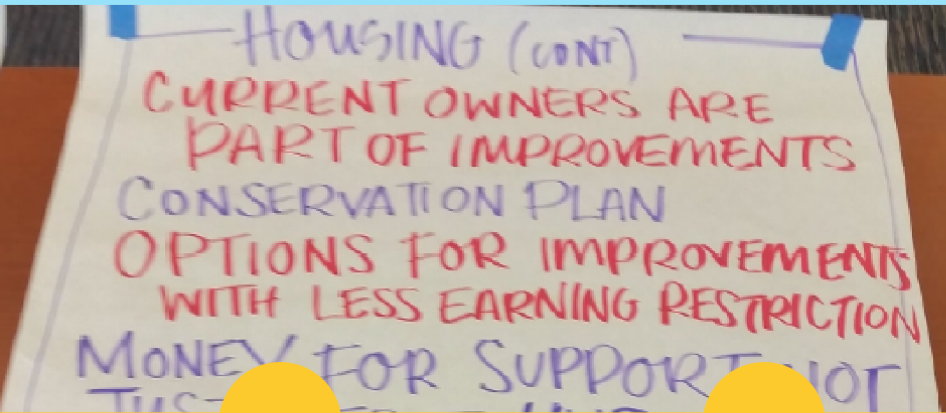 HOUSING (CONT)
CURRENT OWNERS ARE
PART OF IMPROVEMENTS
CONSERVATION PLAN
OPTIONS FOR IMPROVEMENTS
WITH LESS EARNING RESTRICTION
MONEY FOR SUPPORT NOT